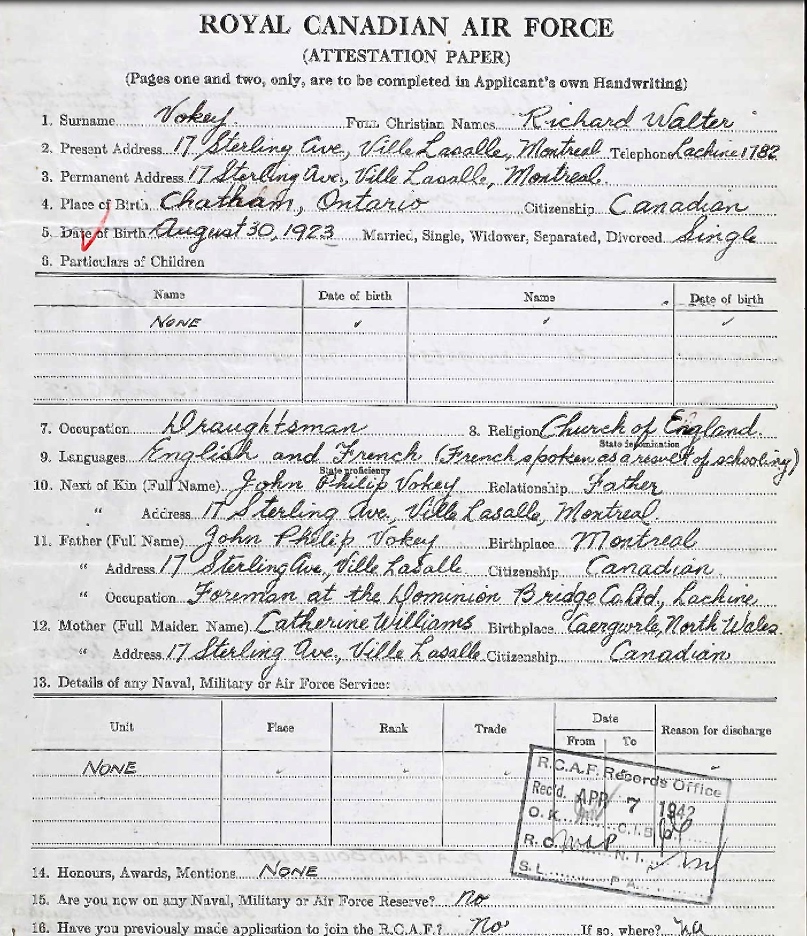 ROYAL CANADIAN AIR FORCE
(ATTESTATION PAPER)
(Pages one and two, only, are to be completed in Applicant's own Handwriting)
1. Surname Vokey. Full Christian Names Richard Walter
2. Present Address 17 Sterling Ave., Ville Lasalle, Montreal Telephone Lachine 1782
3. Permanent Address 17 Sterling Ave., Ville Lasalle, Montreal.
4. Place of Birth Chatham, Ontario Citizenship Canadian
5. Date of Birth August 30, 1923 Married, Single, Widower, Separated, Divorced Single
6. Particulars of Children
Name Date of birth Name Date of birth
NONE
7. Occupation Draughtsman 8. Religion Church of England.
State denomination
9. Languages English and French (French spoken as a result of schooling)
State proficiency
10. Next of Kin (Full Name) John Philip Vokey Relationship Father
" Address 17 Sterling Ave, Ville Lasalle, Montreal.
11. Father (Full Name) John Philip Vokey Birthplace Montreal
" Address 17 Sterling Ave., Ville Lasalle Citizenship Canadian.
" Occupation Foreman at the Dominion Bridge Co. Ltd., Lachine
12. Mother (Full Maiden Name) Catherine Williams Birthplace Caergwrle, North Wales.
" Address 17 Sterling Ave., Ville Lasalle Citizenship Canadian
13. Details of any Naval, Military or Air Force Service:
Unit Place Rank Trade Date From To Reason for discharge
NONE
R.C.A.F. Records Office
Rec'd. APR 7 1942
O.K. C.I.S.
R.C. N.I.
S.L. P.A.
14. Honours, Awards, Mentions NONE
15. Are you now on any Naval, Military or Air Force Reserve? No
16. Have you previously made application to join the R.C.A.F.? No If so, where?